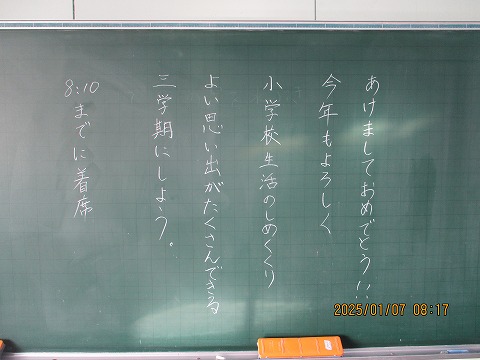 あけましておめでとう!!
今年もよろしく
小学校生活のしめくくり
よい思い出がたくさんできる
三学期にしよう。
8:10までに着席
2025/01/07 08:17